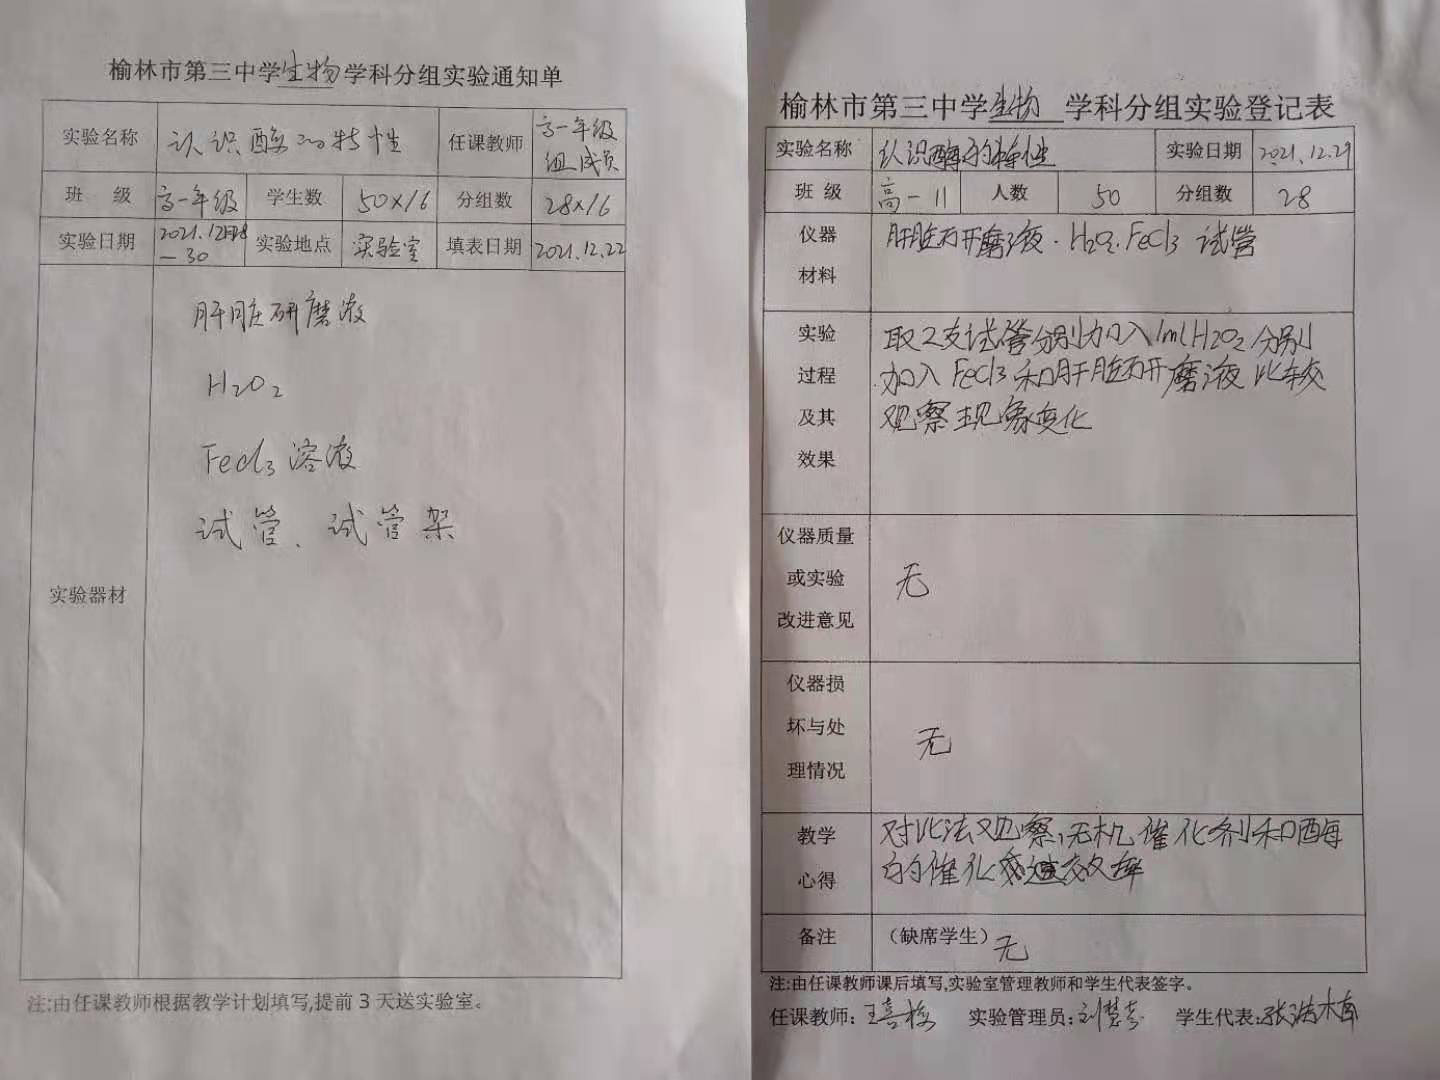 榆林市第三中学生物学科分组实验通知单
实验名称 认识酶的特性 任课教师 高一年级组成员
班 级 高一年级 学生数 50×16 分组数 28×16
实验日期 2021.12月28—30 实验地点 实验室 填表日期 2021.12.22
实验器材
肝脏研磨液
H2O2
FeCl3溶液
试管、试管架
注:由任课教师根据教学计划填写,提前3天送实验室。
榆林市第三中学生物 学科分组实验登记表
实验名称 认识酶的特性 实验日期 2021.12.29
班 级 高一11 人数 50 分组数 28
仪器
材料
肝脏研磨液.H2O2.FeCl3 试管
实验
过程
及其
效果
取2支试管分别加入1mlH2O2分别
加入FeCl3和肝脏研磨液比较
观察现象变化
仪器质量
或实验
改进意见
无
仪器损
坏与处
理情况
无
教学
心得
对比法观察,无机催化剂和酶
的催化效率
备注 (缺席学生)无
注:由任课教师课后填写,实验室管理教师和学生代表签字。
任课教师: 实验管理员: 学生代表: